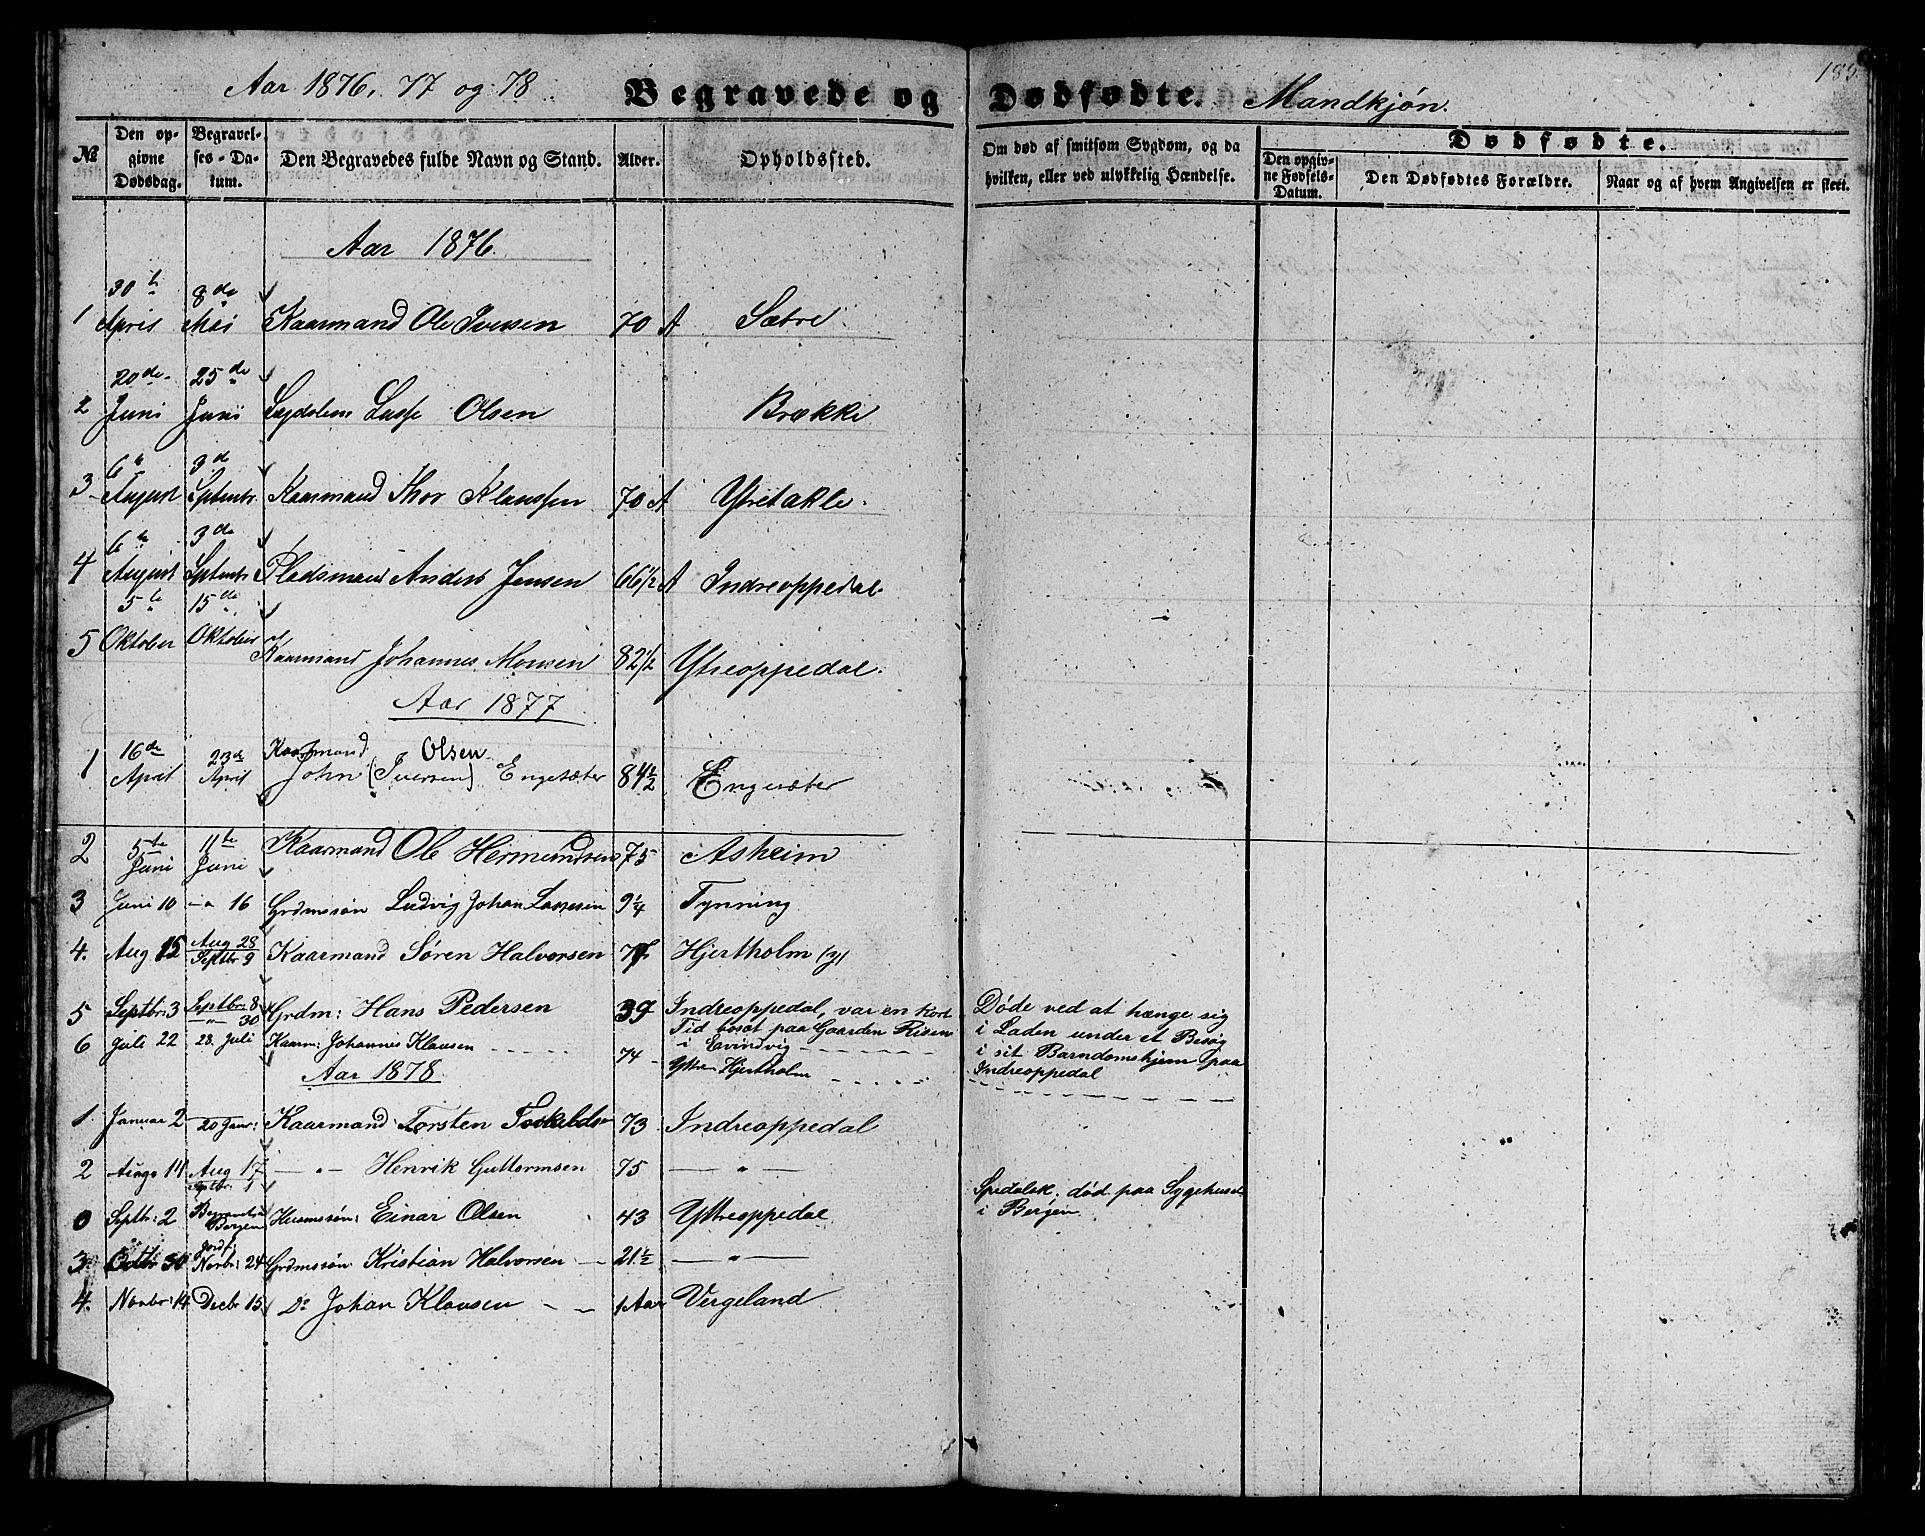 Aar 1876, 77 og 78 Begravede og Dødfødte. Mandkjøn. 185
№ Den opgivne Dødsdag. Begravelses-Datum. Den Begravedes fulde Navn og Stand. Alder. Opholdssted. Om død af smitsom Sygdom, og da hvilken, eller ved ulykkelig Hændelse. Dødfødte.
Den opgivne Fødsels-Datum. Den Dødfødtes Forældre. Naar og af hvem Angivelsen er skeet.
Aar 1876.
1 30te April 8de Mai Kaarmand Ole Iversen 70 A Sætre.
2 20de Juni 25de Juni Lasse Olsen Brække
3 6te August 3de Septembr. Kaarmand Thor Klaussen 70 A Ytretakle.
4 6te August 3de Septembr Pladsmand Anders Jensen 66 1/2 A Indreoppedal.
5 5te Oktober 15de Oktober Kaarmand Johannes Monsen 82 1/2 Ytreoppedal.
Aar 1877
1 16de April 23de April Kaarmand John Olsen (Iversen) Engesæter 84 1/2 Engesæter
2 5te Juni 11te Juni Kaarmand Ole Hermundsen 75 Asheim
3 Juni 10 -"- 16 Grdmssøn Ludvig Johan Lassesen 9 1/4 Tynning
4. Aug 15 Aug 28 Septbr 9 Kaarmand Søren Halvorsen 77 Hjertholm (y)
5 Septbr: 3 Septbr: 8 -"- 30 Grdm: Hans Pedersen 39 Indreoppedal, var en kort Døde ved at hænge sig
Tid bosat paa Gaarden Risen i Laden under et Besøg
i Evindvig i sit Barndomshjem paa
6 Juli 22 28. Juli Kaarm: Johannes Klausen 74 Yttre Hjertholm Indreoppedal
Aar 1878
1. Januar 2 20 Janr: Kaarmand Torsten Toskildsen 73 Indreoppedal
2 Aug 14 Aug 17 Septbr. 1 -"- Henrik Guttormsen 75 -"-
0 Septbr: 2 Begravet i Bergen Husmssøn: Einar Olsen 43 Yttreoppedal Spedalsk, død paa Sygehuset
i Bergen
3. Octbr 30 Jordf. Novbr: 24 Grdmssøn Kristian Halvorsen 21 1/2 -"-
4. Novbr: 14 Decbr 15 Do Johan Klausen 1 Aar Vergeland